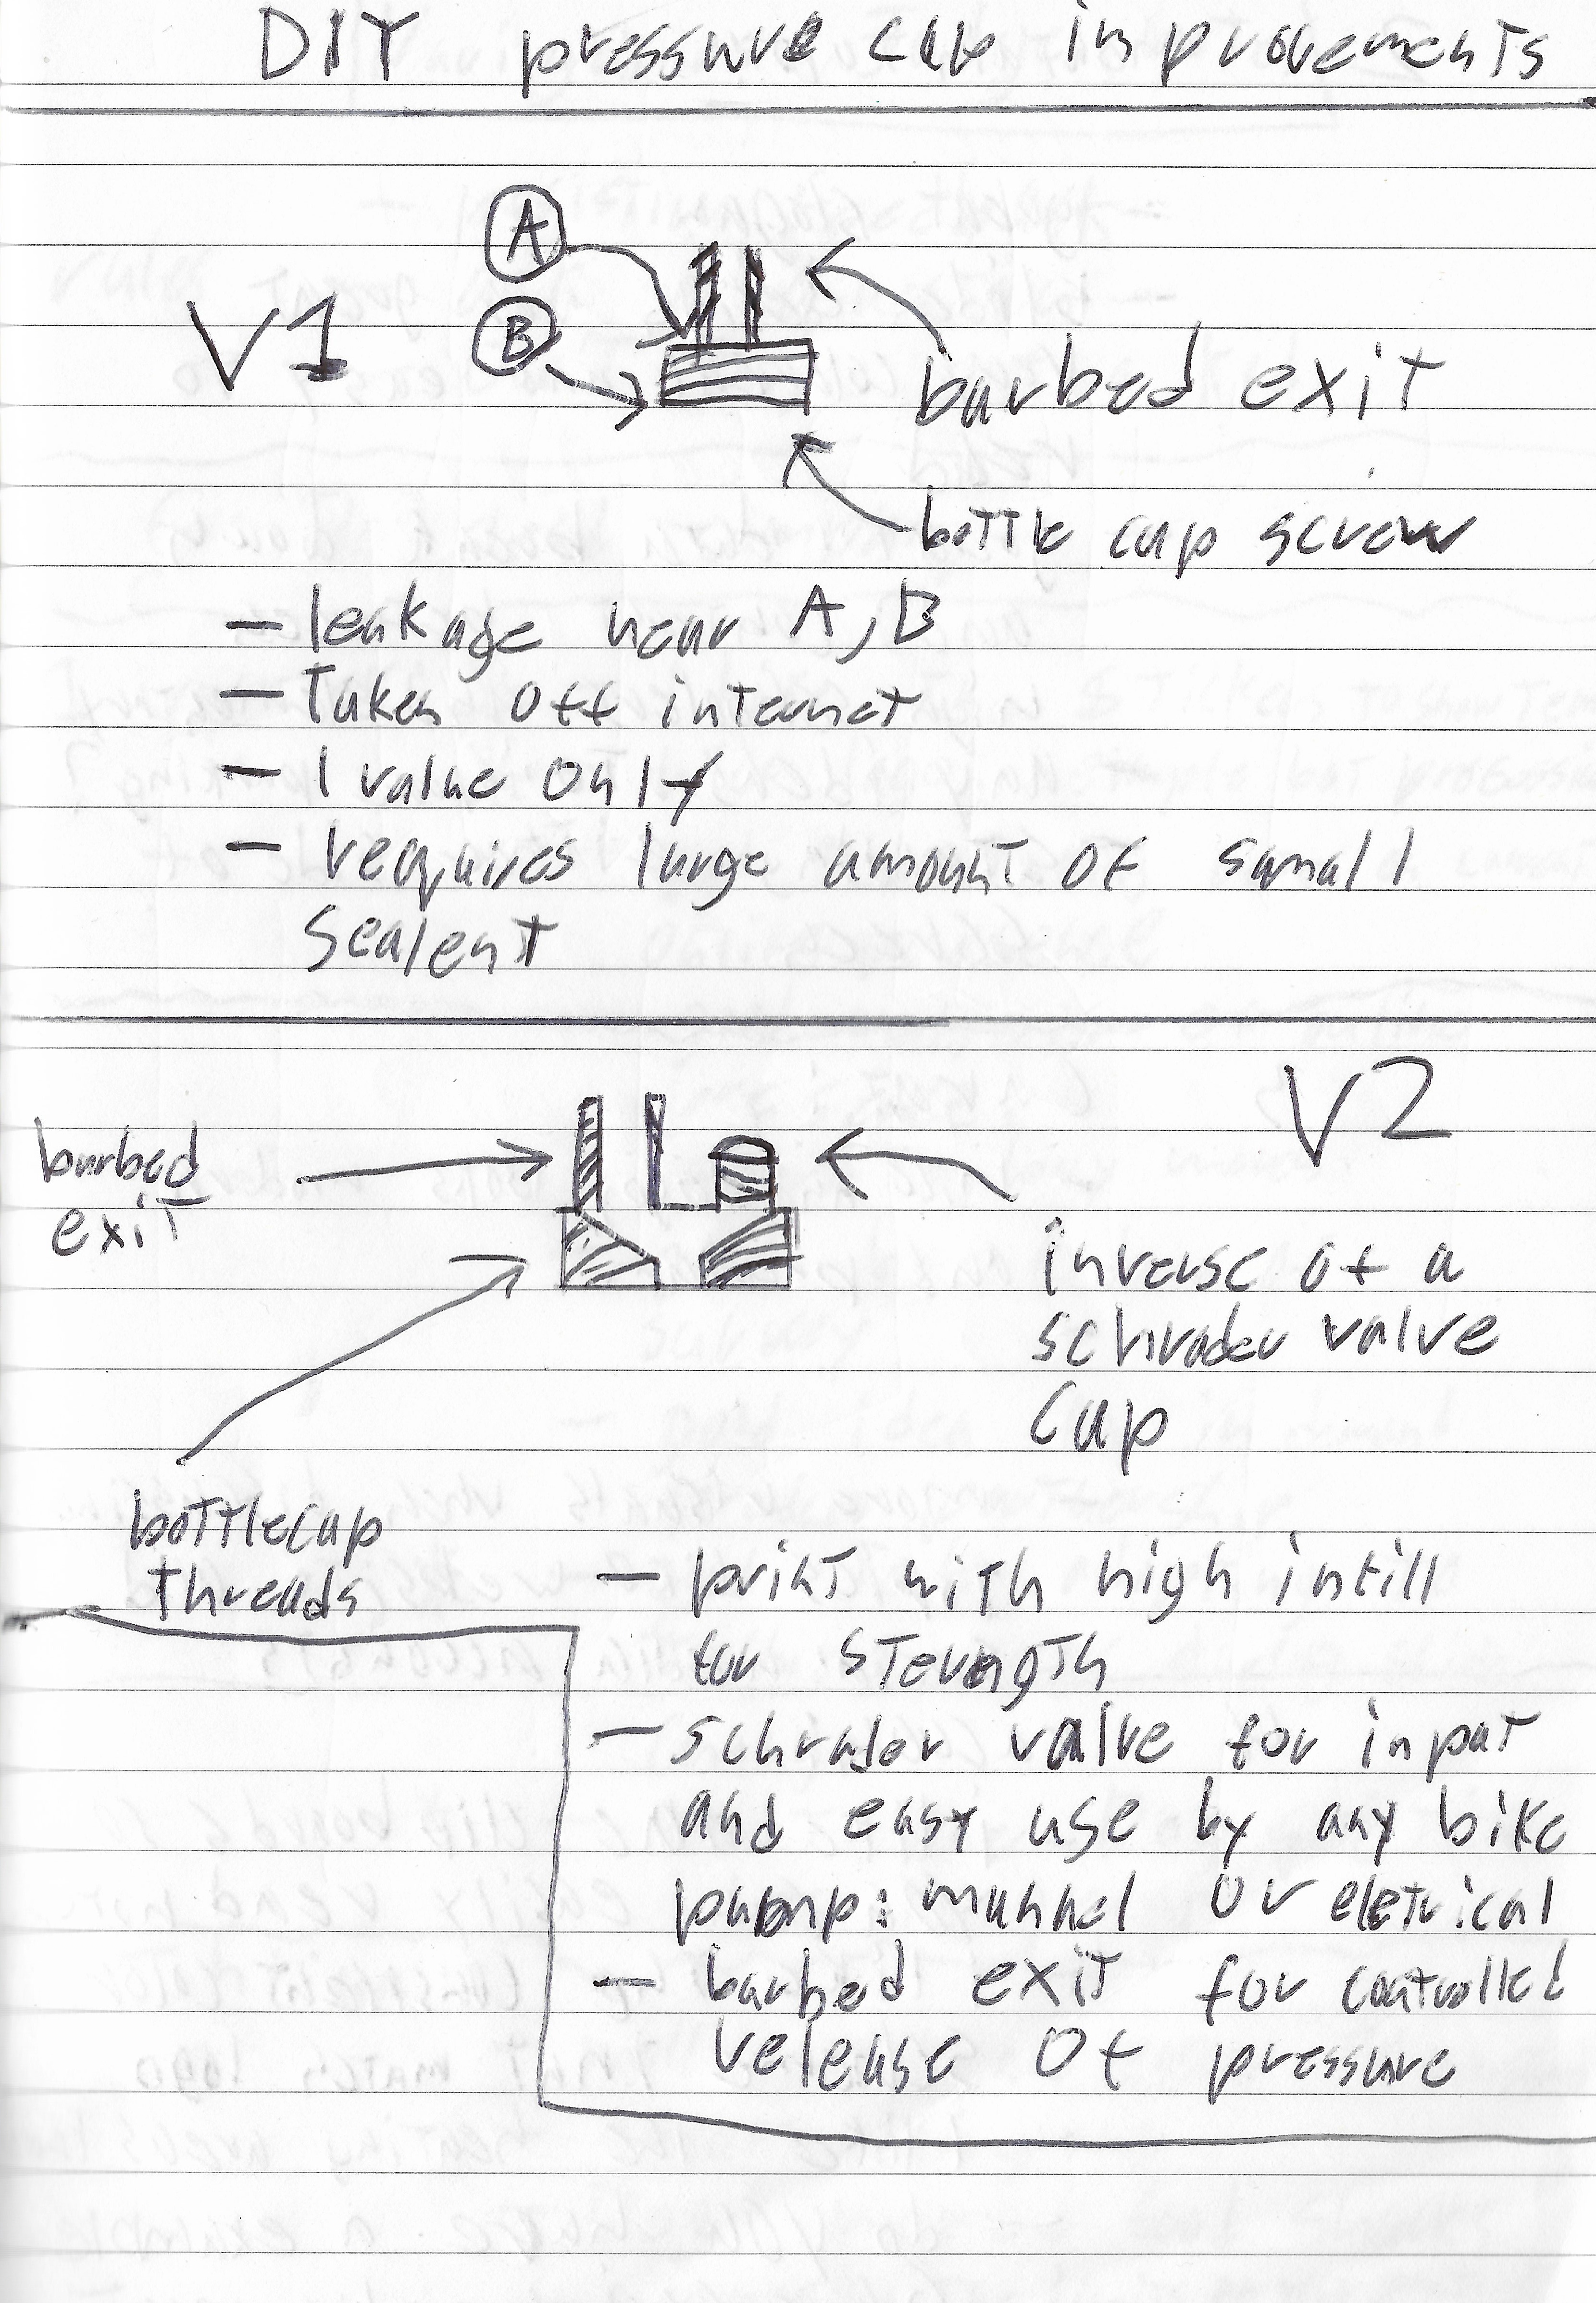 DIY pressure cap improvements
A
B
V1
barbed exit
bottle cap screw
- leakage near A, B
- Taken off internet
- 1 valve only
- requires large amount of small
sealent
V2
barbed
exit
inverse of a
schrader valve
cap
bottlecap
threads
- print with high infill
for sterength
- schrader valve for input
and easy use by any bike
pump: manual or eletrical
- barbed exit for controlled
release of pressure